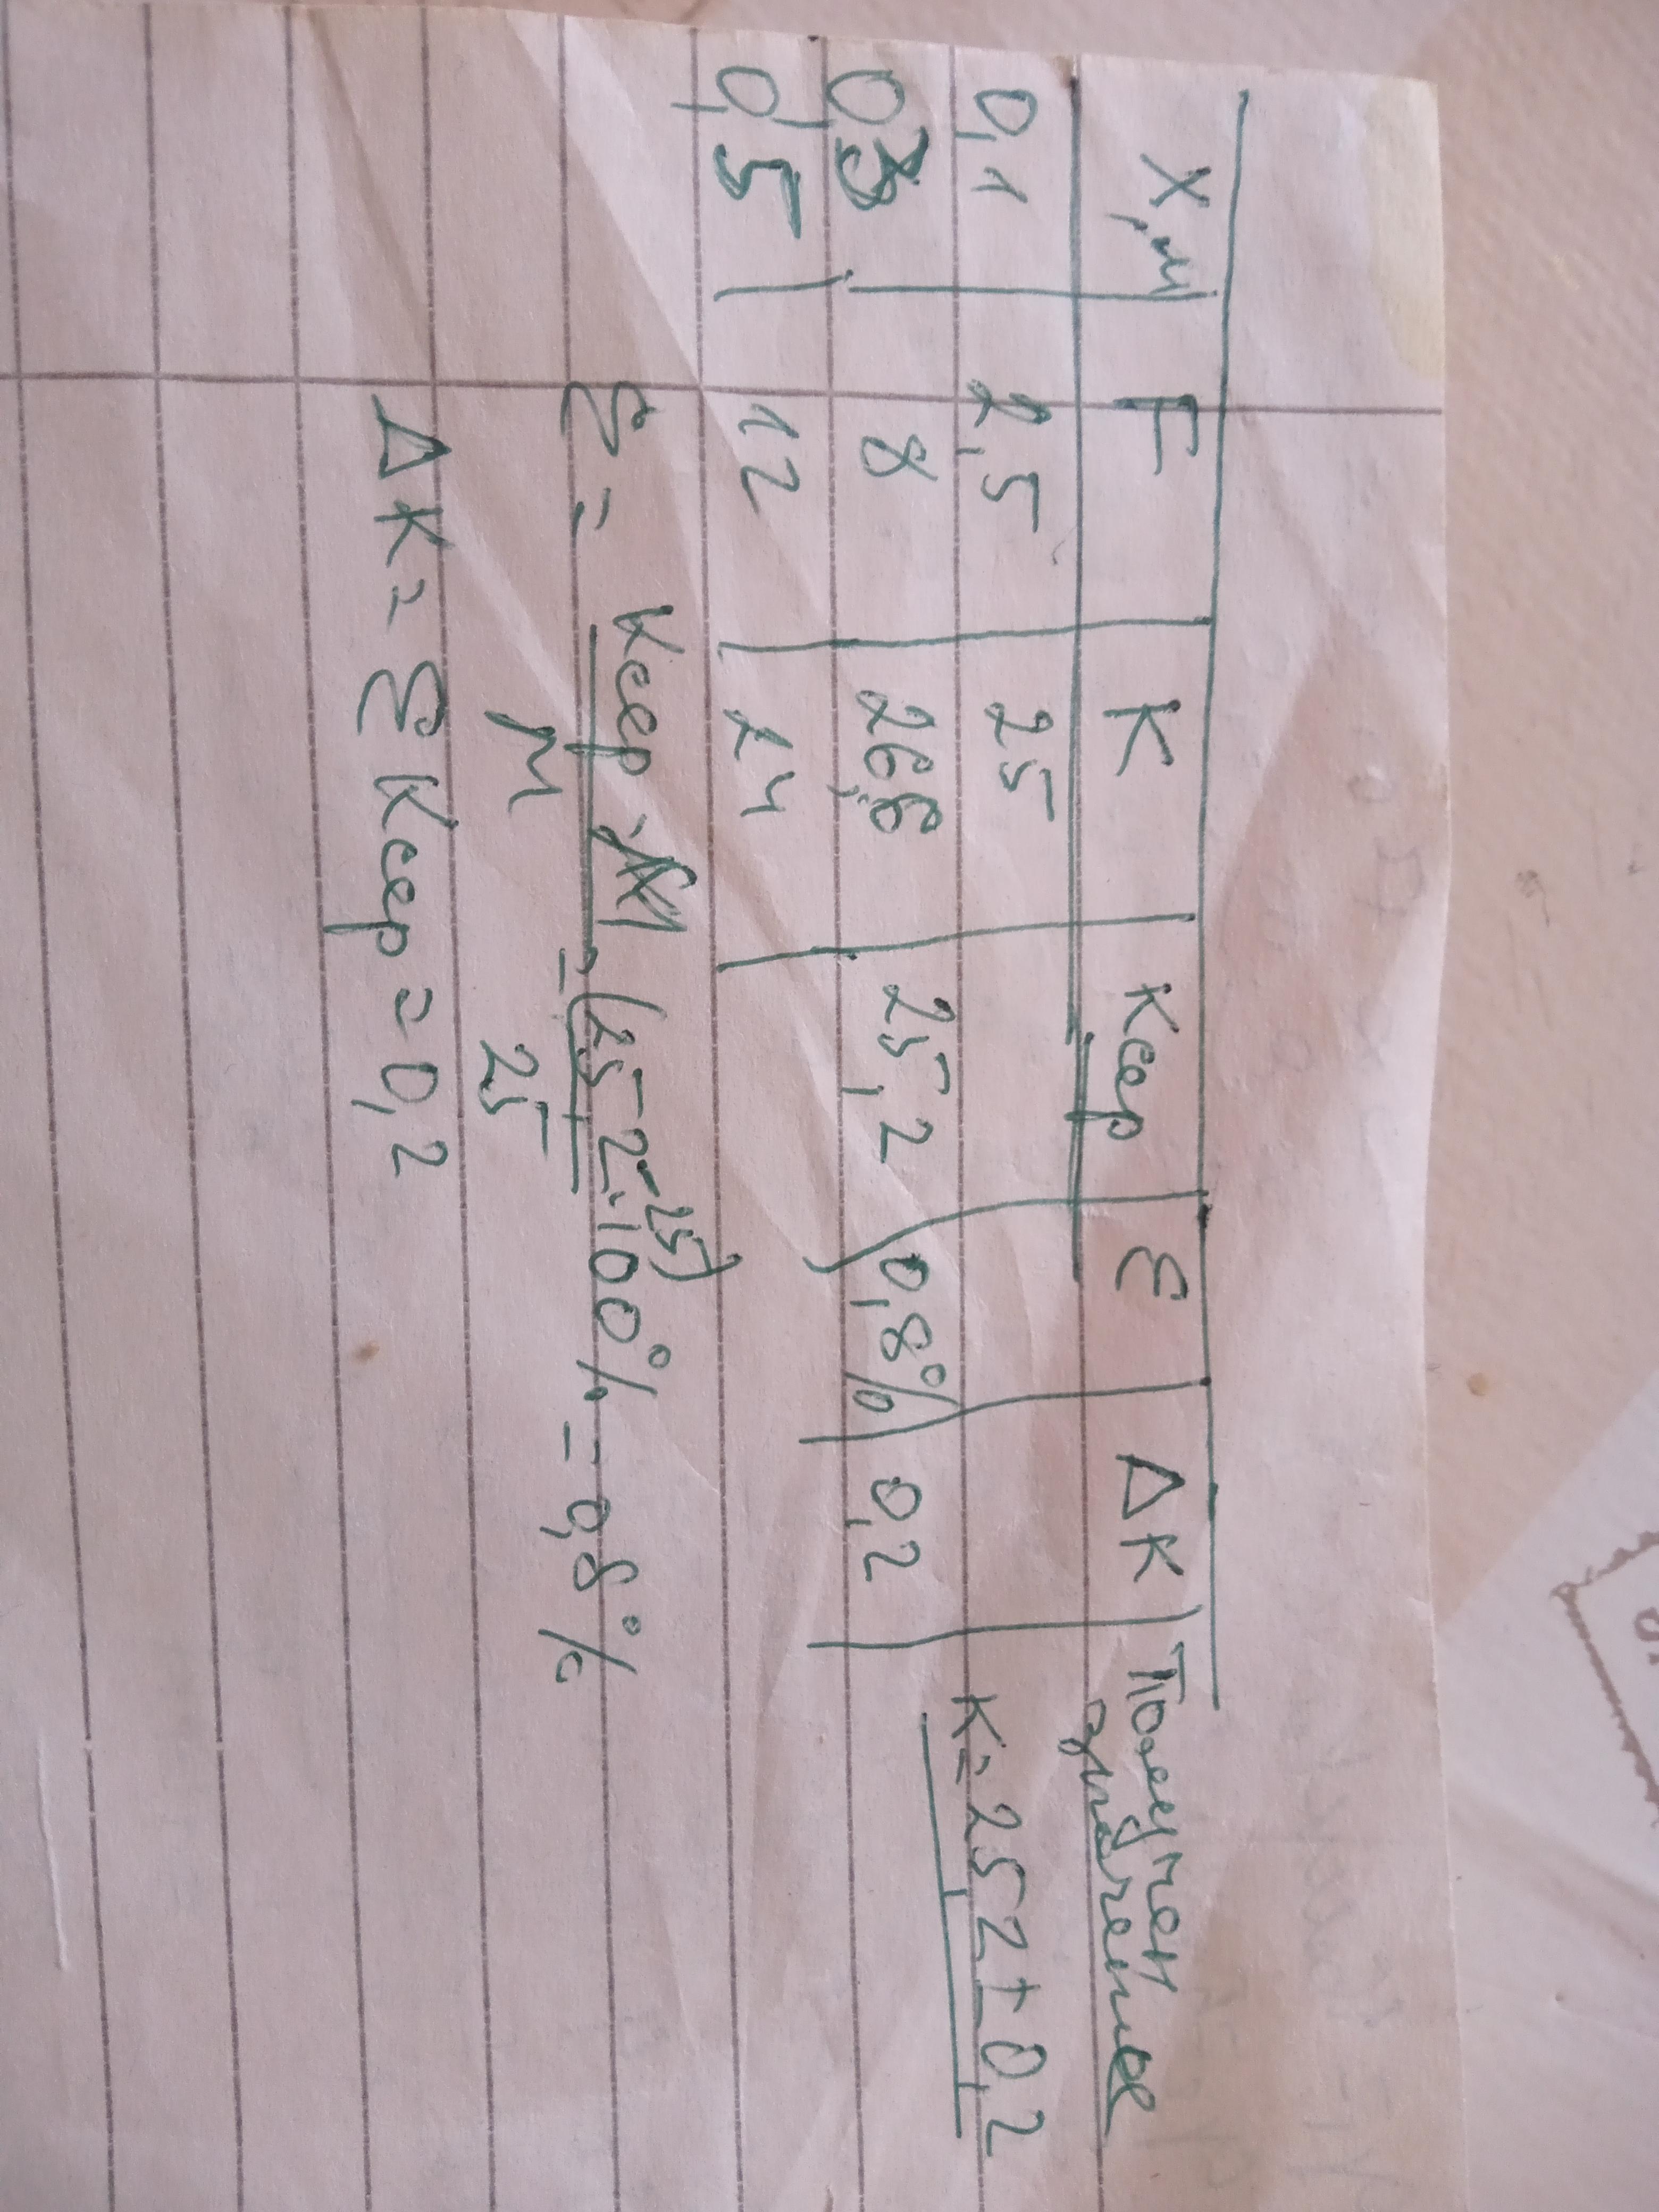 X, м F K Kср ε ΔK Получен
значение
0,1 2,5 25 K = 25,2 ± 0,2
0,3 8 26,6 25,2 0,8% 0,2
0,5 12 24
ε = Kср - M = (25,2 - 25) · 100% = 0,8%
M 25
ΔK = ε Kср = 0,2